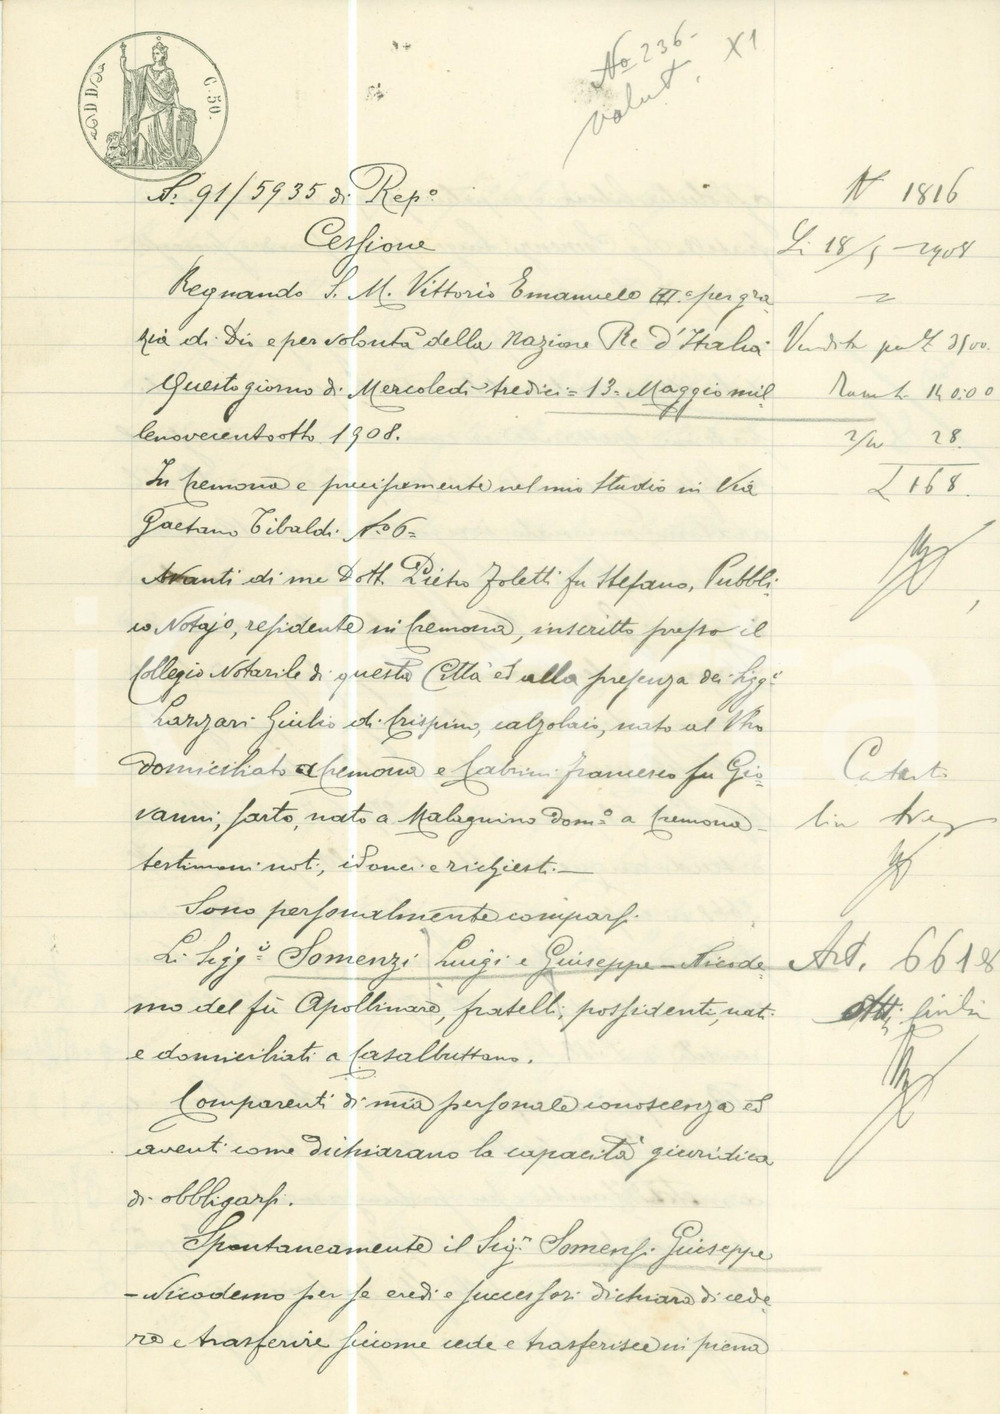 No 236-
X1
C. 50.
N. 91/5935 di Rep.o
N 1816
Cessione
Li 18/5 1908
Regnando S. M. Vittorio Emanuele III.o per gra-
zia di Dio e per volontà della Nazione Re d'Italia
Vendita per £ 3500.
Questo giorno di Mercoledì tredici = 13 = Maggio mil-
140.00
lenovecentootto 1908.
2/10 28.
In Cremona e precisamente nel mio Studio in Via
£ 168.
Gaetano Tibaldi No 6=
Avanti di me Dott. Pietro Foletti fu Stefano, Pubbli-
co Notajo, residente in Cremona, inscritto presso il
Collegio Notarile di questa Città ed alla presenza dei Sigg.i
Lanzari Giulio di Crispino, calzolaio, nato al Vho
domiciliato a Cremona e Cabrini Francesco fu Gio-
Catasto
vanni, sarto, nato a Malagnino dom.o a Cremona
testimoni noti, idonei e richiesti.—
Sono personalmente comparsi
Li Sigg.i Somenzi Luigi e Giuseppe-Nicode-
Art. 6618
mo del fu Apollinare, fratelli, possidenti, nati
Atti Civili
e domiciliati a Casalbuttano.
Comparenti di mia personale conoscenza ed
aventi come dichiarano la capacità giuridica
di obbligarsi.
Spontaneamente il Sig.r Somenzi Giuseppe
-Nicodemo per se eredi e successori dichiara di cede-
re e trasferire siccome cede e trasferisce in piena